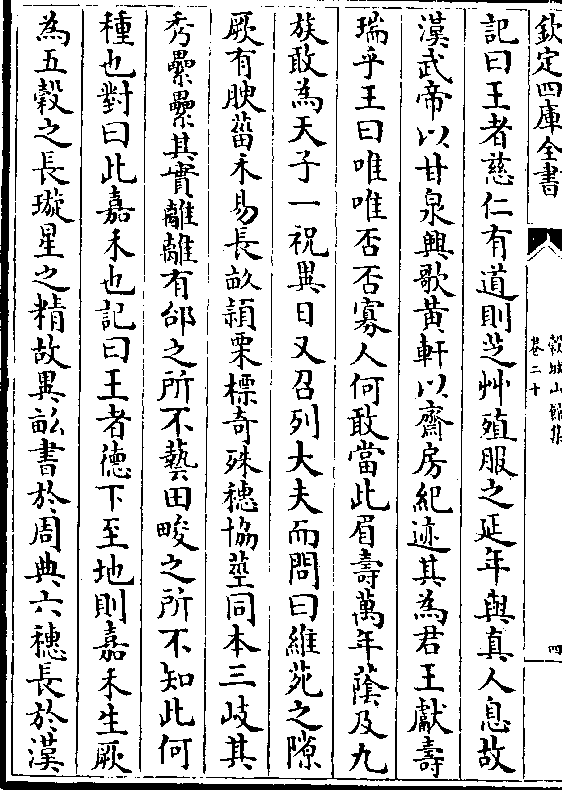 欽定四庫全書
穀城山館集
卷二十
四
記曰王者慈仁有道則芝艸殖服之延年與真人息故
漢武帝以甘泉興歌黄軒以齋房紀迹其為君王獻壽
瑞乎王曰唯唯否否寡人何敢當此眉壽萬年蔭及九
族敢為天子一祝異日又召列大夫而問曰維苑之隙
厥有腴葘禾易長畝頴栗標奇殊穗協莖同本三岐其
秀纍纍其實離離有邰之所不藝田畯之所不知此何
種也對曰此嘉禾也記曰王者徳下至地則嘉禾生厥
為五穀之長璇星之精故異畝書於周典六穗長於漢